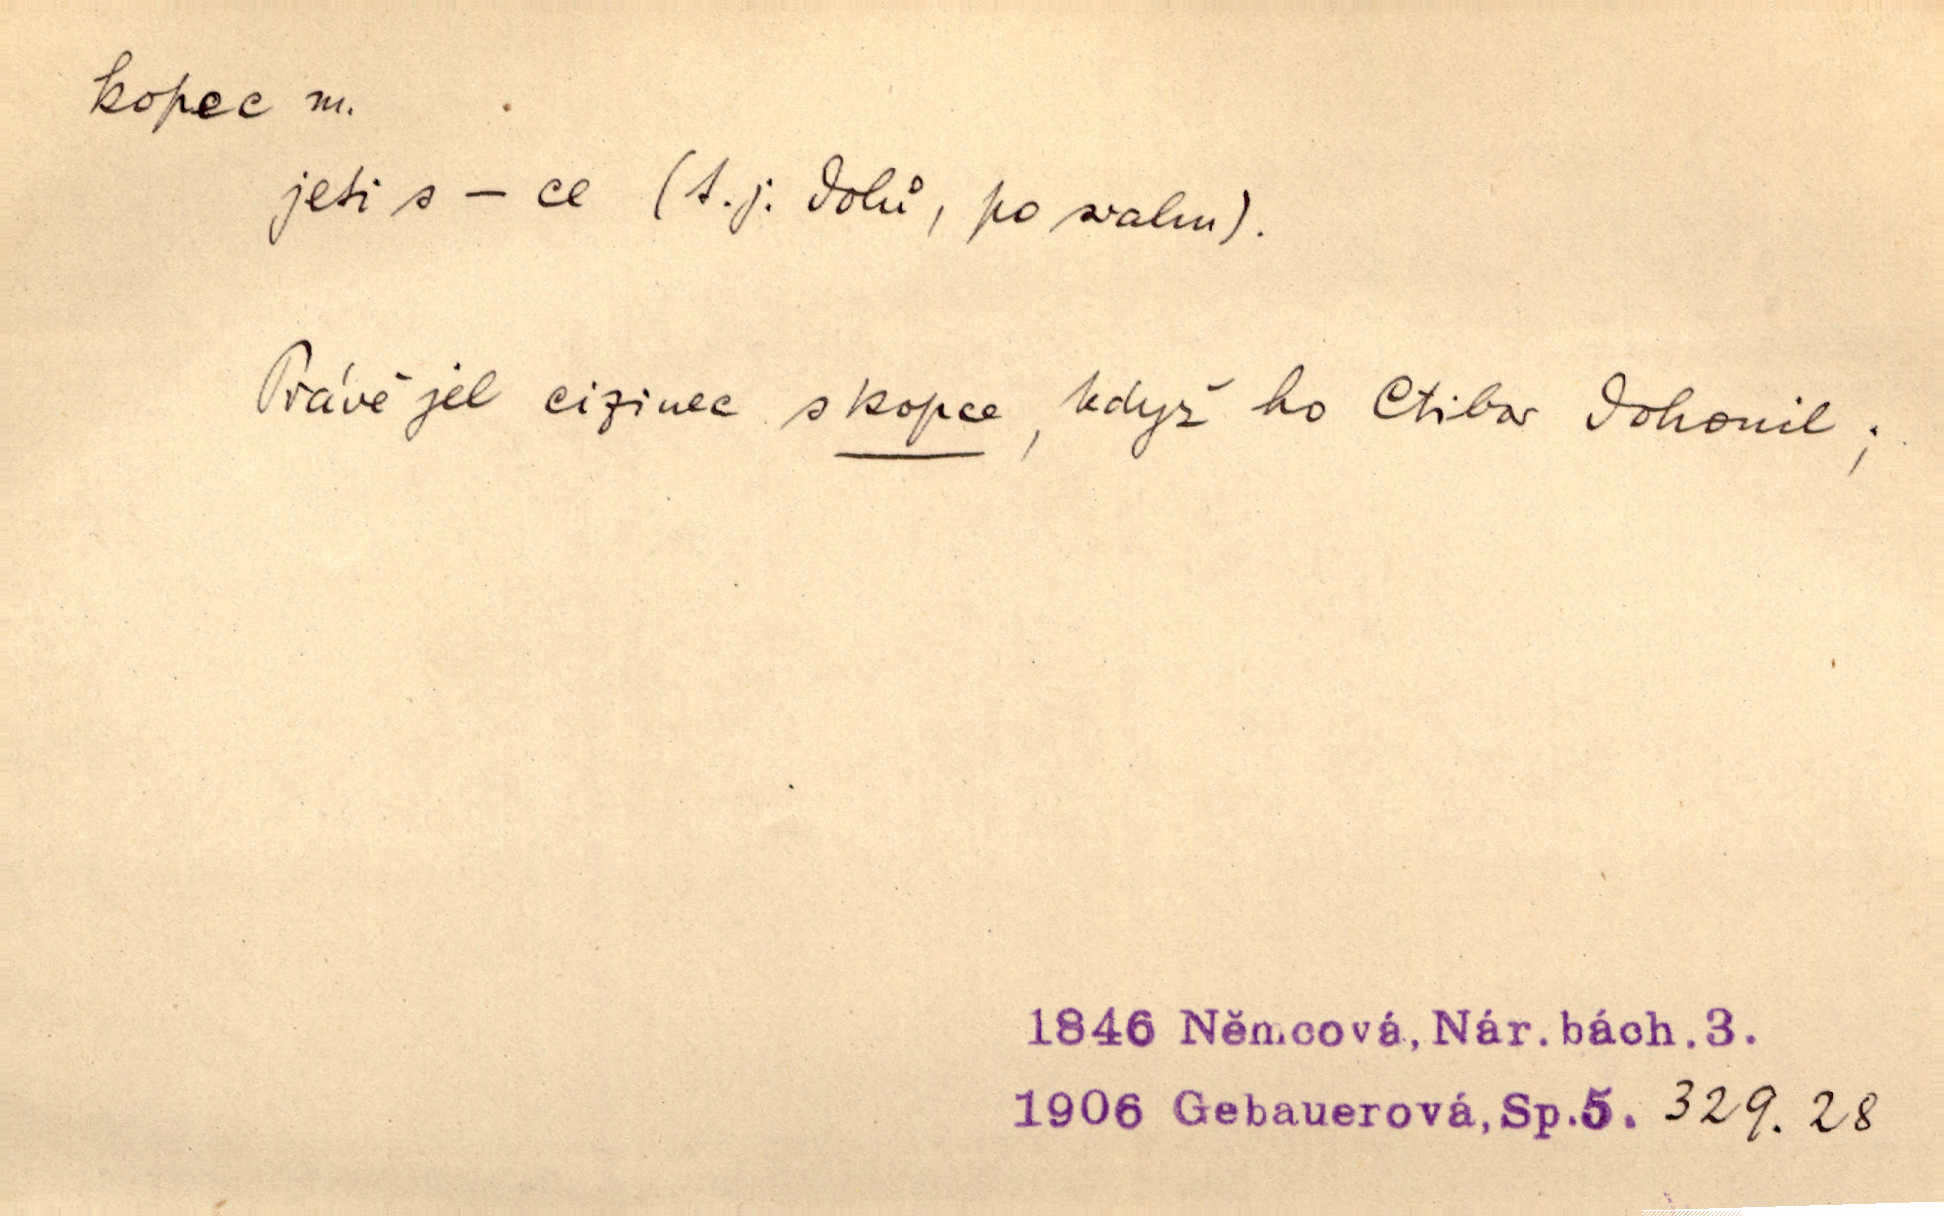 kopec m.
jeti s – ce (t.j. dolů, po svahu).
Právě jel cizinec s kopce, když ho Ctibor dohonil;
1846 Němcová, Nár. bách. 3.
1906 Gebauerová, Sp. 5. 329. 28